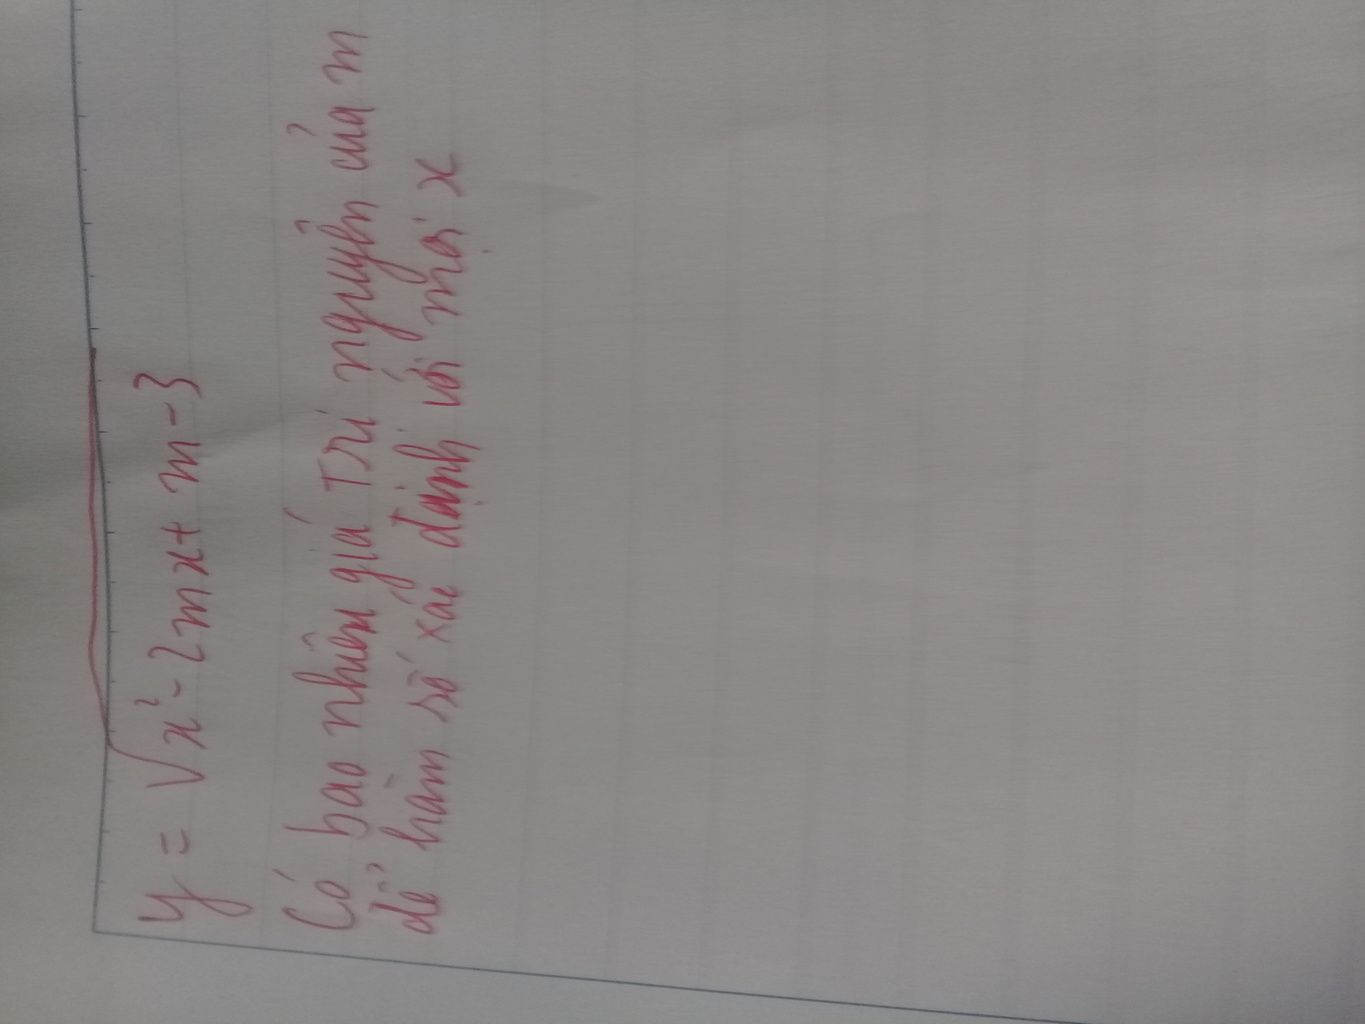 y = √x² - 2mx + m - 3
Có bao nhiêu giá Trị nguyên của m
để hàm số xác định với mọi x